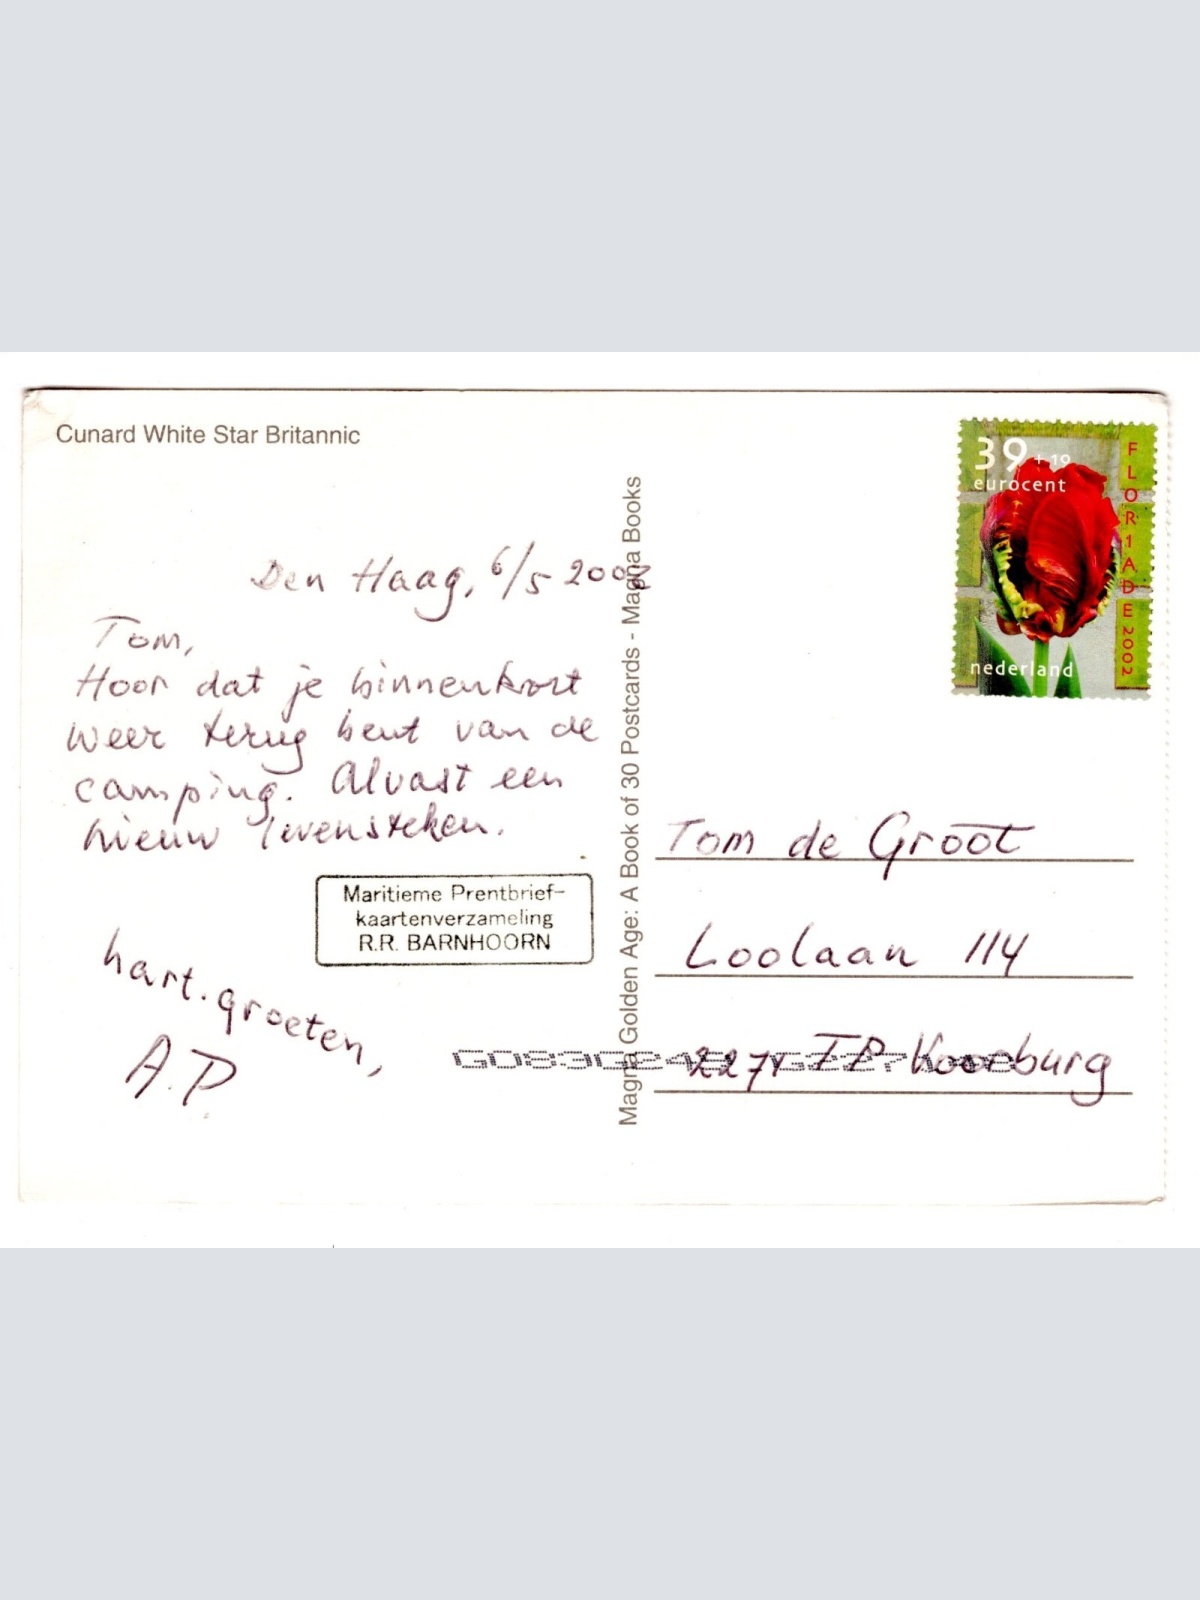 Cunard White Star Britannic
39 +19
eurocent
FLORIADE 2002
nederland
Den Haag, 6/5 2002
Tom,
Hoor dat je binnenkort
weer terug bent van de
camping. Alvast een
nieuw levensteken.
Maritieme Prentbrief-
kaartenverzameling
R.R. BARNHOORN
hart. groeten,
A.P.
Magna Golden Age: A Book of 30 Postcards - Magna Books
Tom de Groot
Loolaan 114
Voorburg